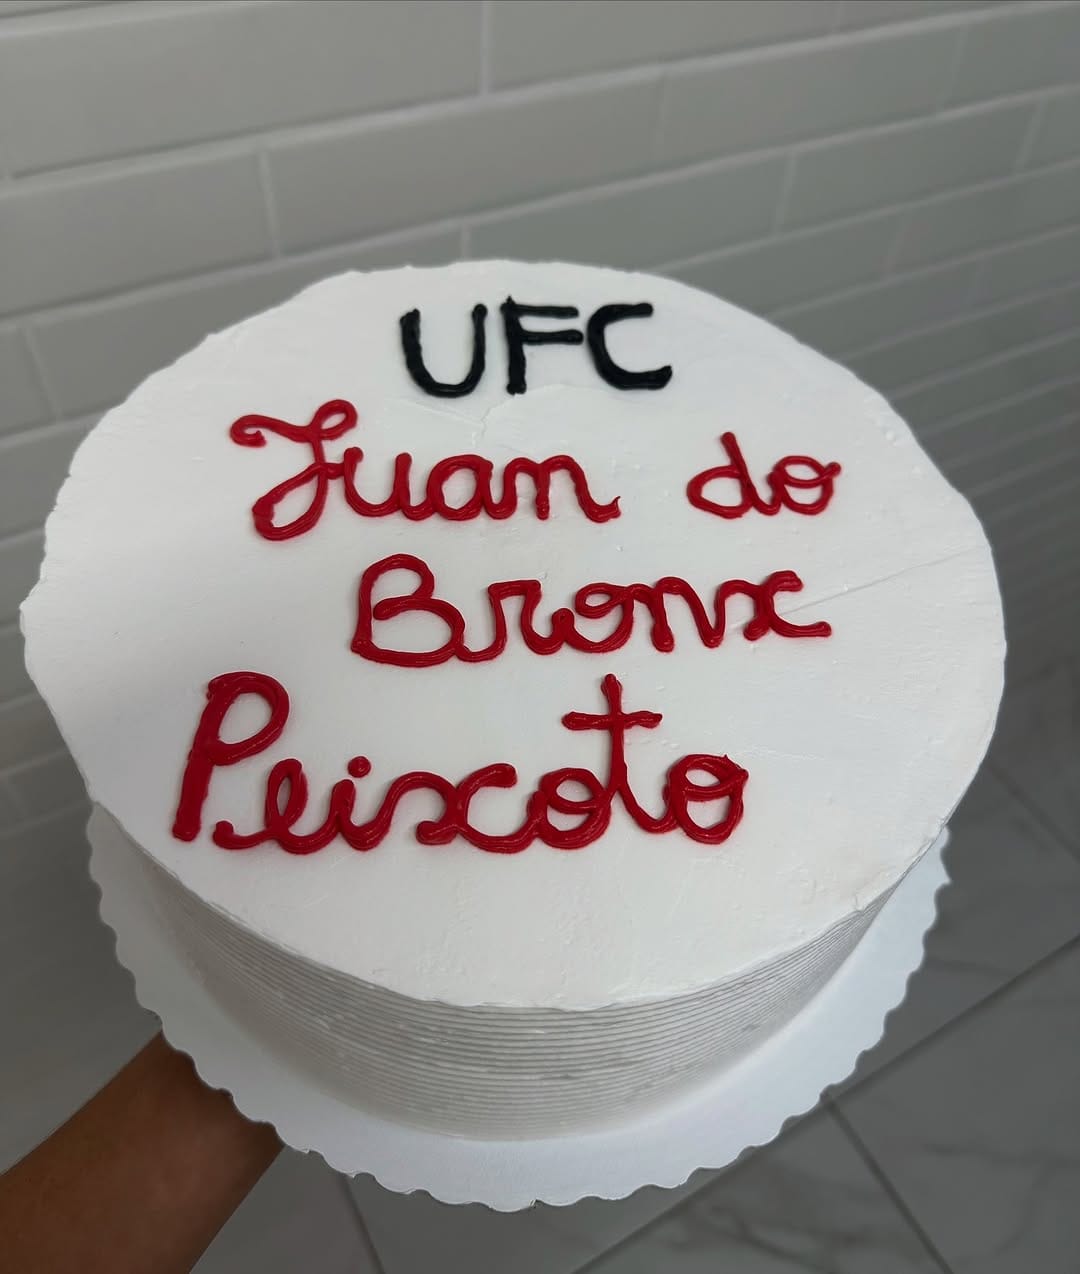 UFC
Juan do
Bronx
Peixoto